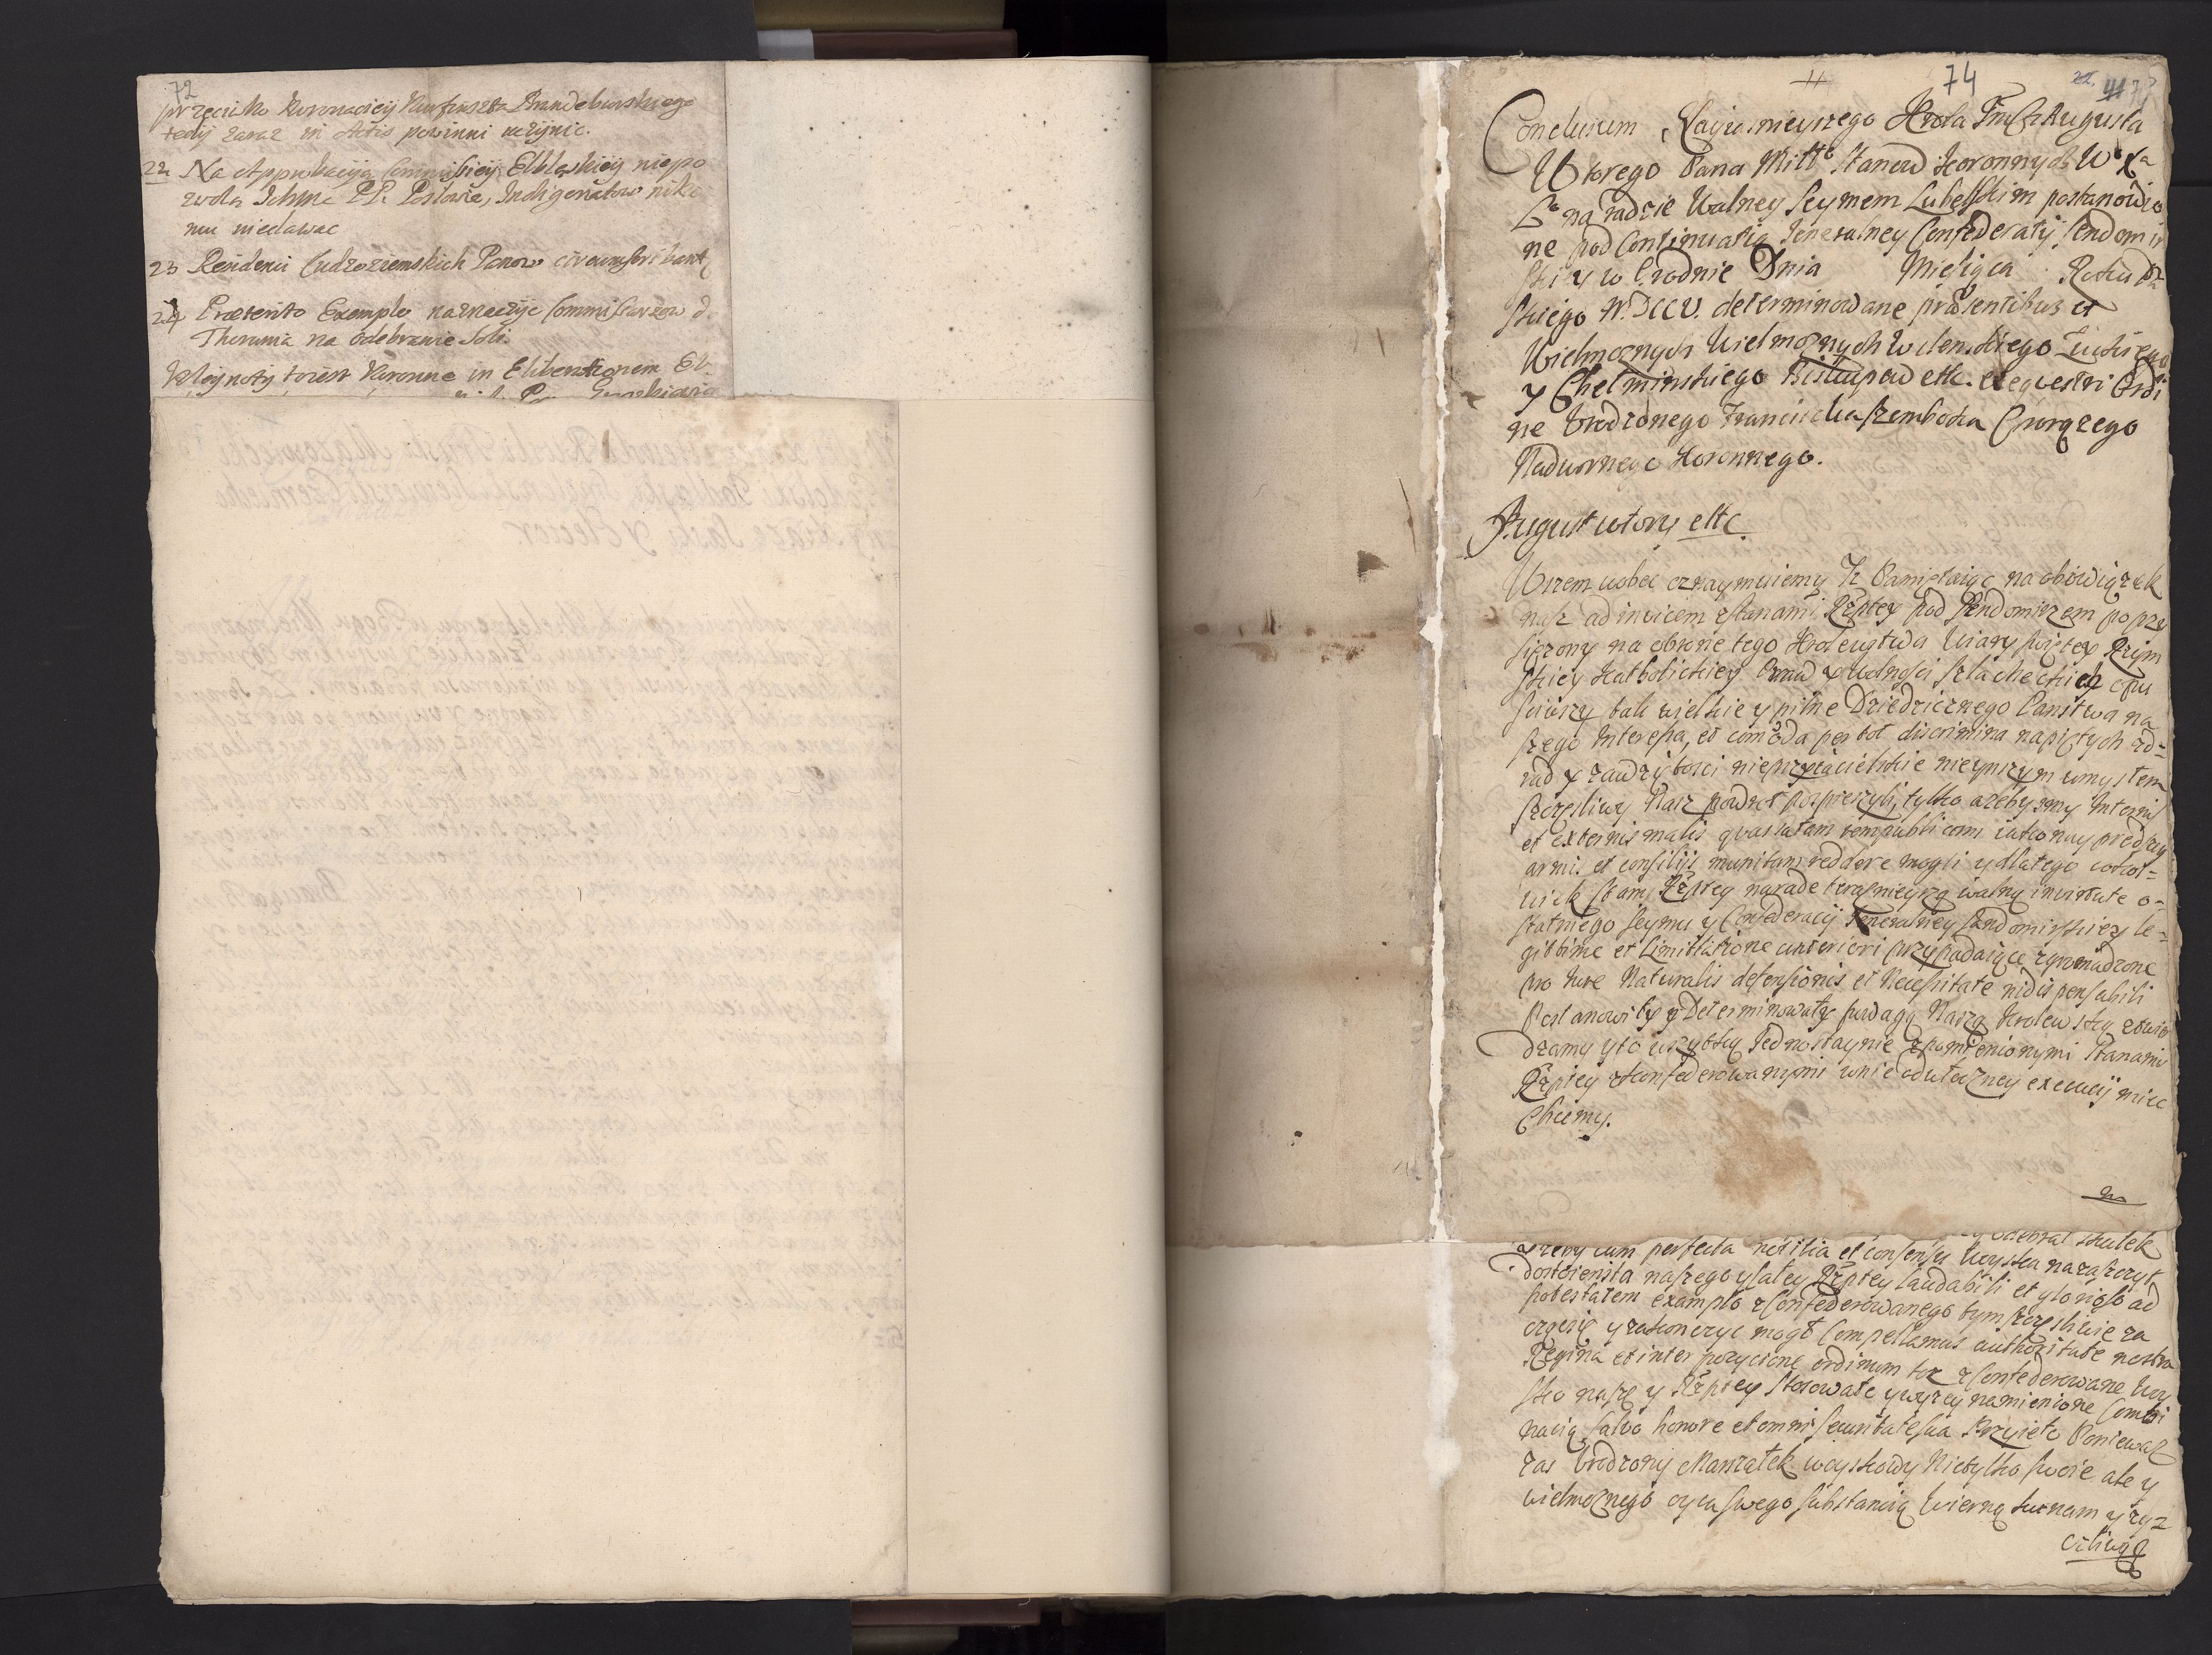 72
przeciwko Koronaciey Kurfirszta Brandeburskiego
tedy zaraz in Actis powinni uczynic.
22 Na Approbacyją Commissiey Elbląskiey niepo
zwolą Ichmc PP. Posłowie, Indigenatow niko
mu niedawac
23 Residenci Cudzoziemskich Panow circumscribantur
24 Praeterito Exemplo naznaczyc Commissarzow do
Thorunia na odebranie Soli.
Kleynoty to iest Koronne in Elibera​tionem El-
74
Conclusum Nayiasnieyszego Krola Imsci Augusta
Wtorego Pana Mittᵒ Stanow Koronnych W Xa
Lᵒ na radzie Walney Seymem Lubelskim postanowio
ne pod Continuatią Generalney Confederatij Sendomir
skiey w Grodnie Dnia Miesiąca Roku Pa
skiego M.DCCV. determinowane praesentibus et
Wielmoznych Wielmoznych Wilenskiego Luckiego
y Chelminskiego Biskupow ettc. ex equestri Ordi
ne Urodzonego Franciszka Szembeka Chorązego
Nadwornego Koronnego.
August wtory ettc.
Wszem wobec oznaymuiemy Iz Pamiętaiąc na obowiązek
nasz ad invicem z stanami Rzptey pod Sendomirzem poprzy
sięzony na obronę tego Krolewstwa Wiary swiętey Rzym
skiey Katholickiey Praw y wolnosci szlacheckich opu
sciwszy tak wielkie y pilne Dziedzicznego Panstwa na
szego Interessa, et com̃oda per tot discrimina napiętych zd=
rad y zawziętosci nieprzyiacielskie nieinszym umysłem
szczesliwy Nasz powrot pospieszyli, tylko azebysmy Internis
et externis malis quassatam rempublicam iako naypredzey
armis et consilijs munitam reddere mogli y dlatego cokol=
wiek stany Rzptey na rade terasnieyszą walną in virtute o=
statniego Seymu y Confederacij Generalney Sandomirskiey le=
gittime et Limittatione anteriori przypadaiące zgromadzone
pro iure Naturalis defensionis et Necessitate nidispensabili
Postanowiły y Determinowały powagą Naszą Krolewską ztwier
dzamy y to wszytko Jednostaynie z pomienionymi Stanami
Rzptey skonfederowanymi w nieodwłoczney execucij miec
Chcemy.
odebrał skutek
y zeby cum perfecta notitia et consensu woyska nazaszczyt
dostoienstwa naszego y całey Rzptey laudabili et glorioso ad
potestatem examplo zConfederowanego tym szczesliwie za
cząc się y zakonczyc mogł Compellamus authoritate nostra
Regina et interpozycione ordinum toz zConfederowane Woy
sko nasze y Rzptey stosowałc y wyzey namienione Combi
nacią, salvo honore et omni securitate sua Przyieło Poniewasz
zas Urodzony Marszałek woyskowy Nietylko swoie ale y
wielmoznego oyca swego substancią wierną ku nam y zy=
czliwą